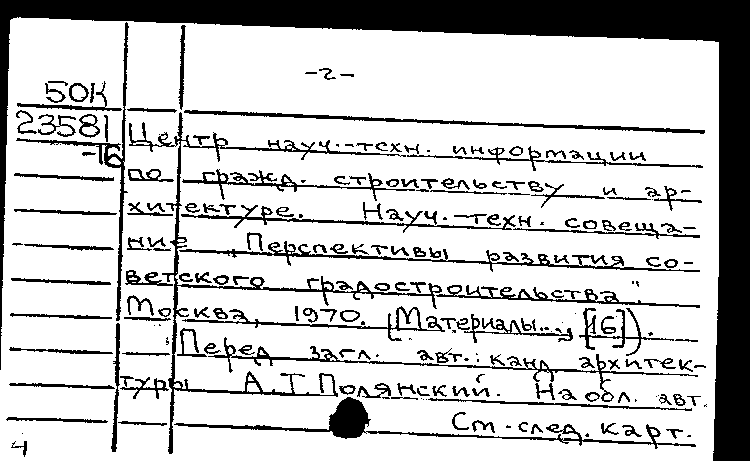 -2-
50К
23581
-16
Центр науч.-техн. информации
по гражд. строительству и ар-
хитектуре. Науч.-техн. совеща-
ние "Перспективы развития со-
ветского градостроительства".
Москва, 1970. (Материалы... [16]).
Перед загл. авт.: канд. архитек-
туры А.Т. Полянский. На обл. авт.
См. след. карт.
4